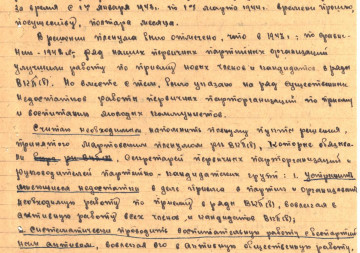 за время с 1го января 1943г. по 1го марта 1944г. времени прошло,
полугодия, полтора месяца.
В решении пленума было отмечено, что в 1943г. по сравне-
нию - 1942г. ряд наших первичных партийных организаций
улучшили работу по приему новых членов и кандидатов в ряды
ВКП(б). Но вместе с тем, было указано на ряд существенных
недостатков работы первичных парторганизаций по приему
и воспитанию молодых коммунистов.
Считаю необходимым напомнить пленуму пункты решения,
принятого мартовским пленумом РК ВКП(б), которые обязали
секретарей первичных парторганизаций и
руководителей партийно-кандидатских групп: 1. Устранить
имеющиеся недостатки в деле приема в партию и организовать
необходимую работу по приему в ряды ВКП(б), вовлекая в
активную работу всех членов и кандидатов ВКП(б);
2. Систематически проводить воспитательную работу с беспартий-
ным активом, вовлекая его в активную общественную работу.